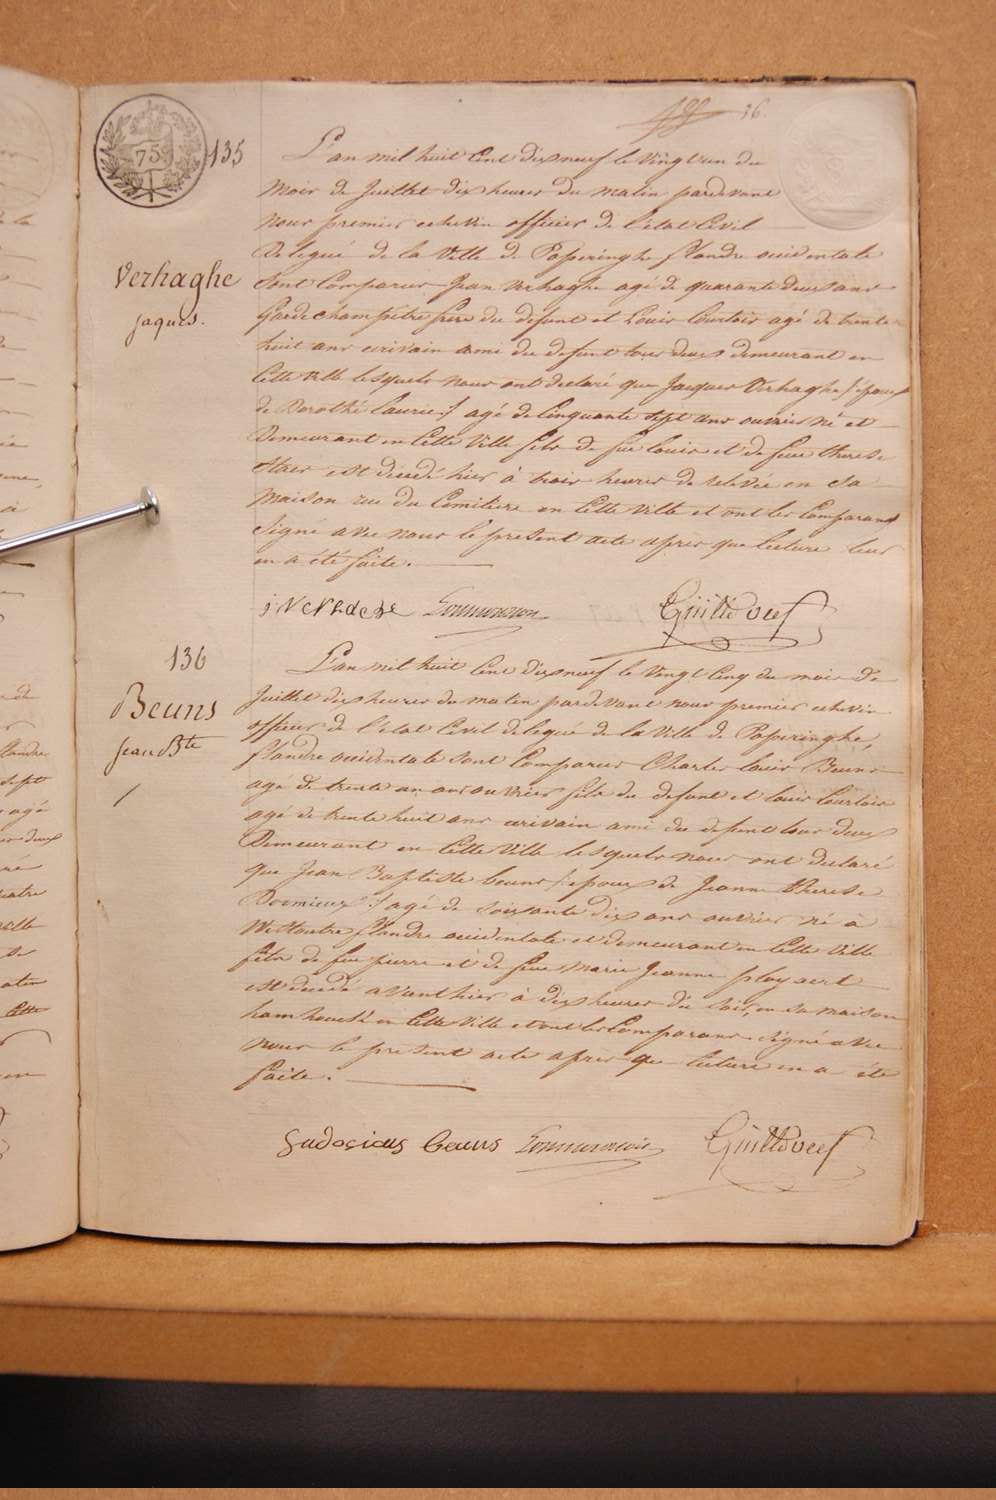 75
135
16.
L'an mil huit Cent Dixneuf le Vingt un du
Mois de Juillet dix heures du matin pardevant
nous premier echevin officier de l'état Civil
Delegué de la Ville de Poperinghe flandre occidentale
sont Comparus Jean Verhaghe agé de quarante deux ans
Verhaghe
Jaques.
Garde champêtre frere du defunt et Louis Courtois agé de trente
huit ans ecrivain ami du defunt tous deux demeurant en
Cette Ville lesquels nous ont declaré que Jacques Verhaghe /: epoux
de Dorothé :/ agé de Cinquante Sept ans ouvrier né et
Demeurant en Cette Ville fils de feu Louis et de feue therese
est decedé hier à trois heures de relevée en sa
Maison rue du Cemitiere en Cette Ville et ont les Comparans
Signé avec nous le present acte apres que lecture leur
en a été faite.
136
Beuns
Jean Bte
L'an mil huit Cent Dixneuf le Vingt Cinq du mois de
Juillet dix heures du matin pardevant nous premier echevin
officier de l'état Civil delegué de la Ville de Poperinghe,
flandre occidentale sont Comparus Charles Louis Beuns
agé de trente un ans ouvrier fils du defunt et Louis Courtois
agé de trente huit ans ecrivain ami du defunt tous deux
Demeurant en Cette Ville lesquels nous ont declaré
que Jean Baptiste beuns /: epoux de Jeanne therese
Dormieux :/ agé de soixante dix ans ouvrier né à
Westoutre flandre occidentale et demeurant en Cette Ville
fils de feu pierre et de feue Marie Jeanne
est decedé avant hier à dix heures du soir, en sa maison
en Cette Ville et ont les Comparans Signé avec
nous le present acte apres que lecture en a été
faite.